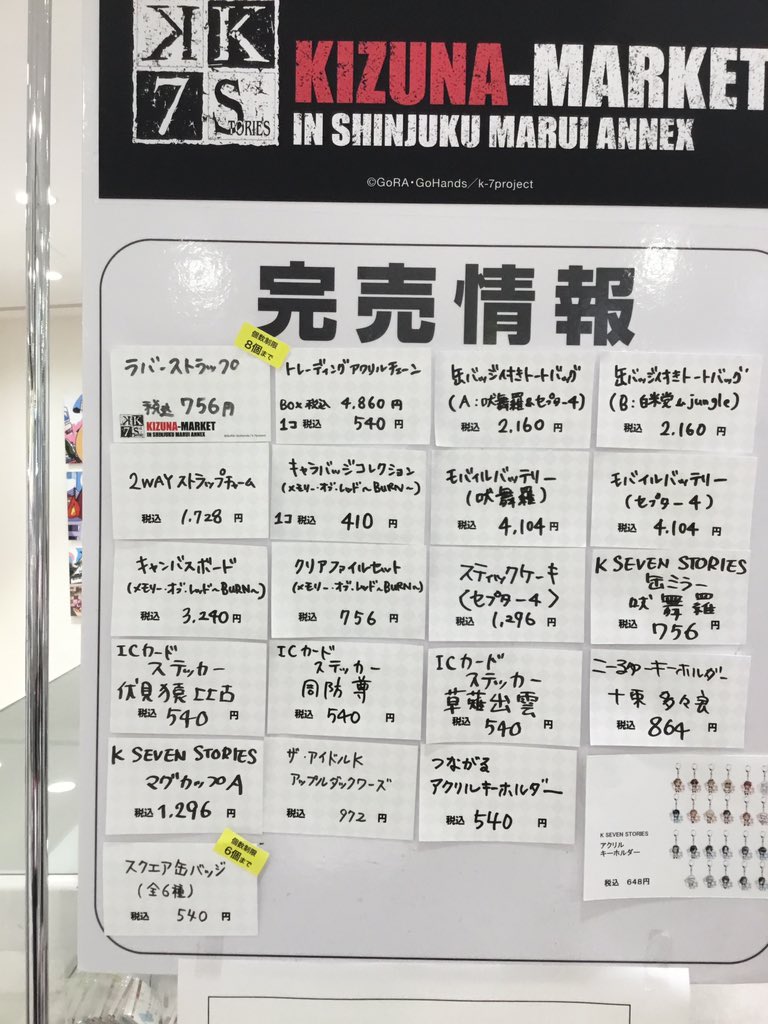 K K
7 STORIES
KIZUNA-MARKET
IN SHINJUKU MARUI ANNEX
©GoRA・GoHands/k-7project
完売情報
個数制限
8個まで
ラバーストラップ
税込 756円
KIZUNA-MARKET
IN SHINJUKU MARUI ANNEX
トレーディングアクリルチェーン
BOX 税込 4,860 円
1コ 税込 540 円
缶バッジ付きトートバッグ
(A:吠舞羅&セプター4)
税込 2,160 円
缶バッジ付きトートバッグ
(B:白米党&jungle)
税込 2,160 円
2WAYストラップチャーム
税込 1,728 円
キャラバッジコレクション
(メモリー・オブ・レッド〜BURN〜)
1コ 税込 410 円
モバイルバッテリー
(吠舞羅)
税込 4,104 円
モバイルバッテリー
(セプター4)
税込 4,104 円
キャンバスボード
(メモリー・オブ・レッド〜BURN〜)
税込 3,240 円
クリアファイルセット
(メモリー・オブ・レッド〜BURN〜)
税込 756 円
スティックケーキ
(セプター4)
税込 1,296 円
K SEVEN STORIES
缶ミラー
吠舞羅
税込 756 円
ICカード
ステッカー
伏見猿比古
税込 540 円
ICカード
ステッカー
周防尊
税込 540 円
ICカード
ステッカー
草薙出雲
税込 540 円
キーホルダー
十束 多々良
税込 864 円
K SEVEN STORIES
マグカップA
税込 1,296 円
ザ・アイドルK
アップルダックワーズ
税込 972 円
つながる
アクリルキーホルダー
税込 540 円
K SEVEN STORIES
アクリル
キーホルダー
税込 648円
個数制限
6個まで
スクエア缶バッジ
(全6種)
税込 540 円